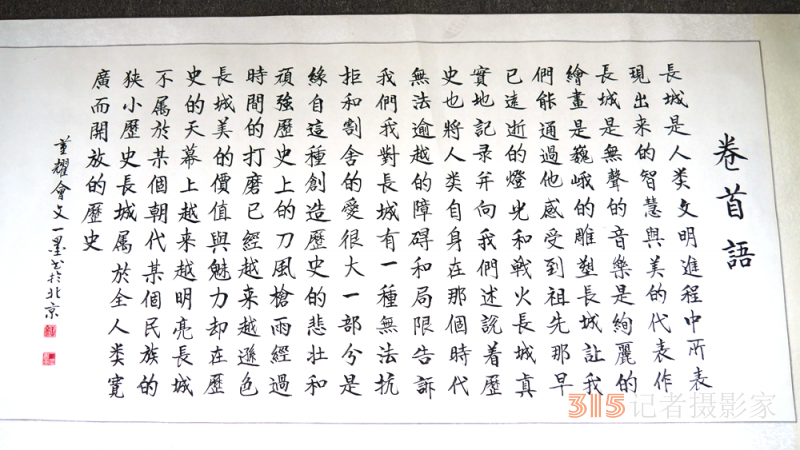 卷首語
長城是人类文明進程中所表
現出来的智慧與美的代表作
長城是無聲的音樂是絢麗的
繪畫是巍峨的雕塑長城让我
們能通過他感受到祖先那早
已遠逝的燈光和戰火長城真
實地記录并向我們述說着歷
史也將人类自身在那個時代
無法逾越的障碍和局限告訴
我們我對長城有一種無法抗
拒和割舍的愛很大一部分是
緣自這種創造歷史的悲壯和
頑強歷史上的刀風槍雨經過
時間的打磨已經越来越遜色
長城美的價值與魅力却在歷
史的天幕上越来越明亮長城
不属於某個朝代某個民族的
狹小歷史長城属於全人类寬
廣而開放的歷史
董耀會文一墨书於北京
315记者摄影家